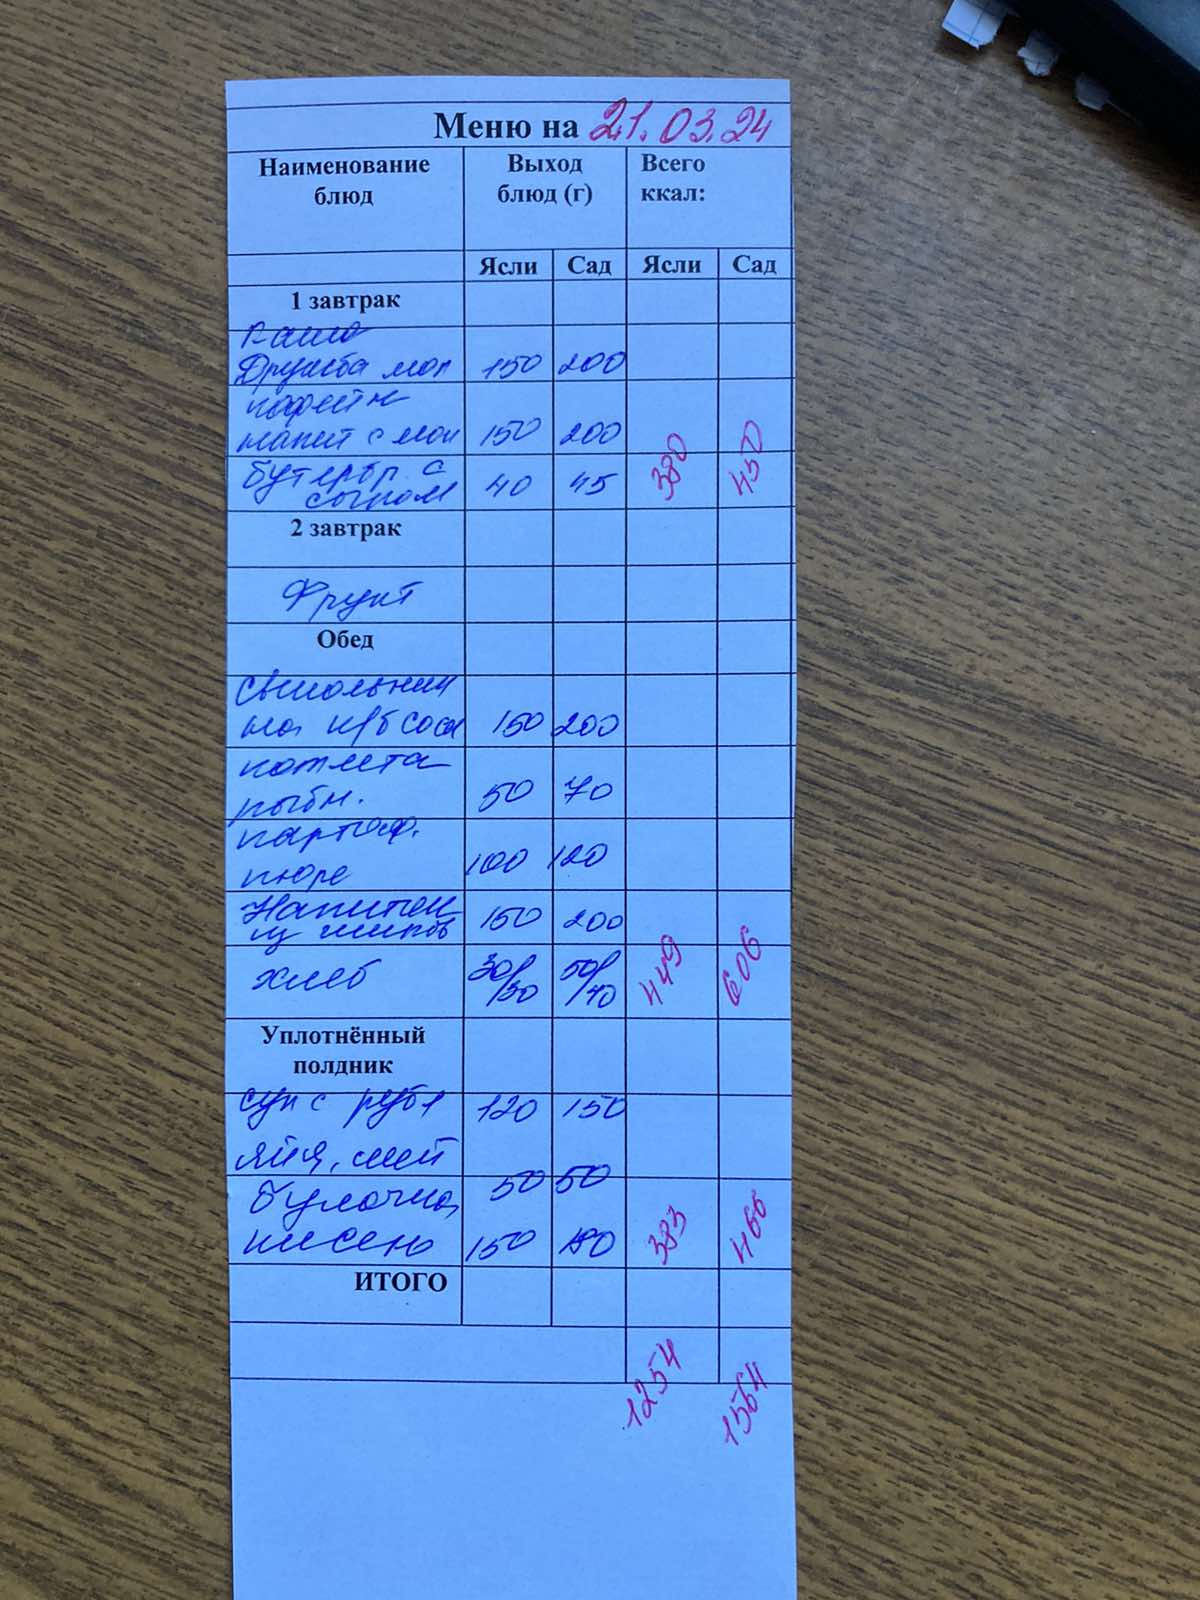 Меню на 21.03.24
Наименование блюд Выход блюд (г) Всего ккал:
Ясли Сад Ясли Сад
1 завтрак
Каша
Дружба мол 150 200
кофейн
напит с мол 150 200
бутербр. с
сыром 40 45 380 450
2 завтрак
Фрукт
Обед
Свекольник
на к/б 150 200
котлета
рыбн. 50 70
картоф.
пюре 100 120
Напиток
из шипов 150 200
хлеб 30/30 50/40 449 606
Уплотнённый
полдник
суп с рубл 120 150
яйц, смет
булочка 50 50
кисель 150 180 383 466
ИТОГО
1254 1564